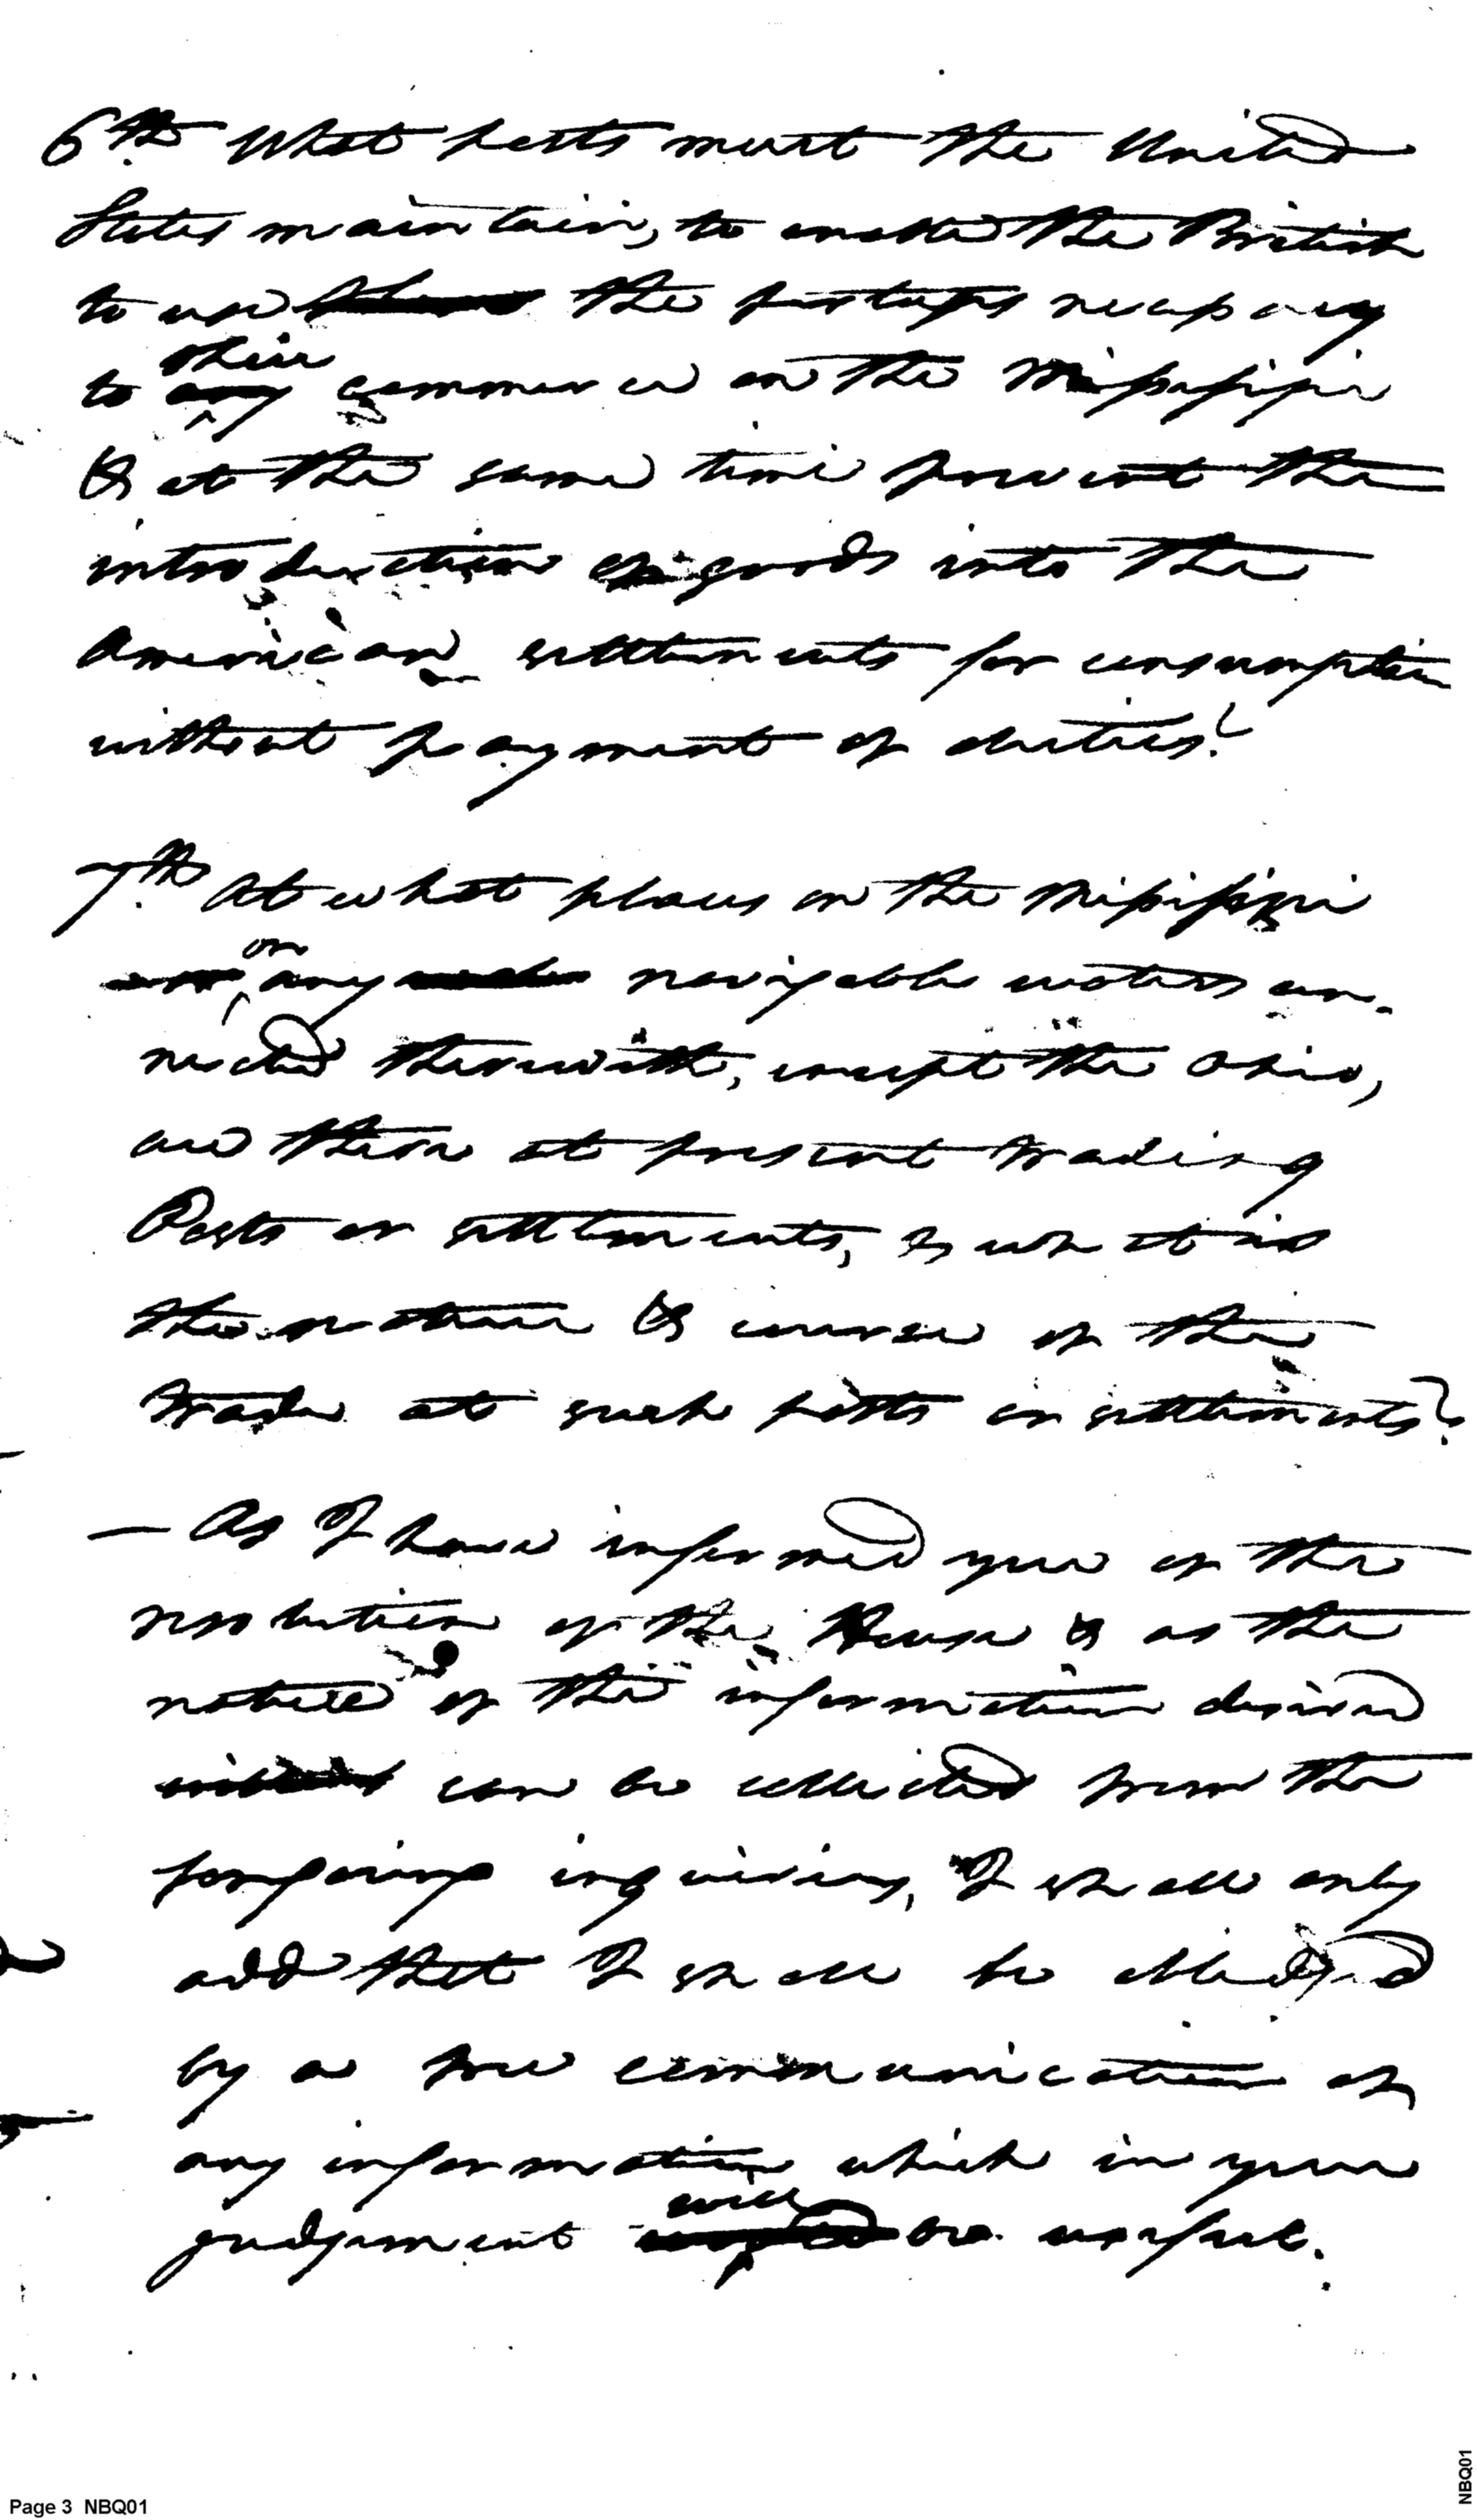 6th What posts must the United
States maintain, to enable the British
to use the portages necessary
to any their commerce on the Missisippi
& at the same time prevent the
introduction of goods into the
American settlements for consumption
without payment of duties?
7th At what places on the Missisippi
or any navigable waters con-
nected therewith, except the Ohio,
are there at present trading
Posts or settlements, & what is
the nature & course of the
trade at such posts or settlements?
— As I have informed you of the
resolution of the House & as the
nature of the information desired
can be collected from the
foregoing inquiries, I shall only
add that I shall be obliged
by a free communication of
any information which in your
judgement will be useful.
Page 3 NBQ01
NBQ01